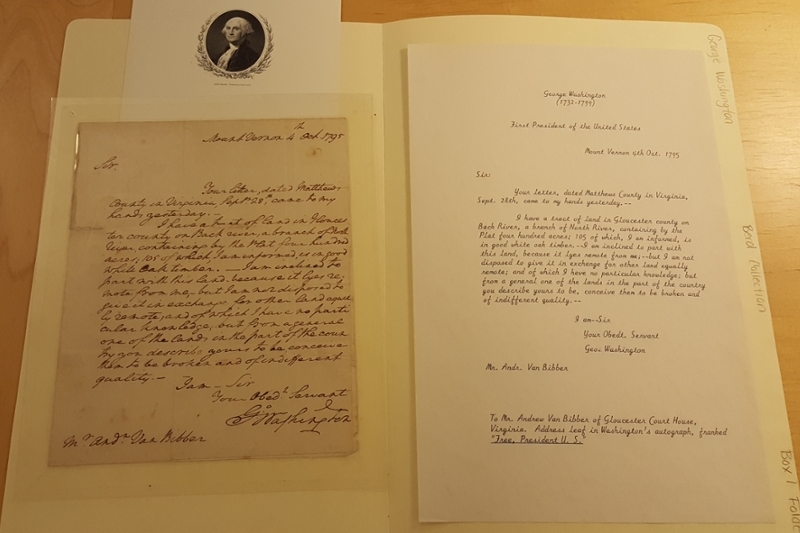 Mount Vernon 4th Oct. 1795
Sir,
Your letter, dated Matthews
County in Virginia, Sept. 28th, came to my
hands yesterday.—
I have a tract of land in Glouces-
ter county on Back river, a branch of North
River, containing by the Plat four hundred
acres; 105 of which, I am informed, is in good
white Oak timber. — I am inclined to
part with this land, because it lyes re-
mote from me; but I am not disposed to
give it in exchange for other land equal
ly remote; and of which I have no parti
cular knowledge, but from a general
one of the lands in the part of the coun
try you describe yours to be, conceive
them to be broken and of indifferent
quality.—
I am – Sir
Your Obedt. Servant
Go Washington
Mr. Andw. Van Bibber
George Washington
(1732-1799)
First President of the United States
Mount Vernon 4th Oct. 1795
Sir:
Your letter, dated Matthews County in Virginia,
Sept. 28th, came to my hands yesterday.--
I have a tract of land in Gloucester county on
Back River, a branch of North River, containing by the
Plat four hundred acres; 105 of which, I am informed, is
in good white oak timber.--I am inclined to part with
this land, because it lyes remote from me;--but I am not
disposed to give it in exchange for other land equally
remote; and of which I have no particular knowledge; but
from a general one of the lands in the part of the country
you describe yours to be, conceive them to be broken and
of indifferent quality.--
I am-Sir
Your Obedt. Servant
Geo. Washington
Mr. Andr. Van Bibber
To Mr. Andrew Van Bibber of Gloucester Court House,
Virginia. Address Leaf in Washington's autograph, franked
"Free, President U. S."
George Washington
Box 1 Folde